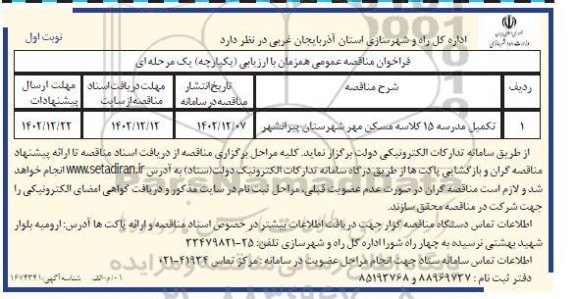 نوبت اول
اداره کل راه و شهرسازی استان آذربایجان غربی در نظر دارد
فراخوان مناقصه عمومی همزمان با ارزیابی (یکپارچه) یک مرحله ای
ردیف	شرح مناقصه	تاریخ انتشار مناقصه در سامانه	مهلت دریافت اسناد مناقصه از سایت	مهلت ارسال پیشنهادات
۱	تکمیل مدرسه ۱۵ کلاسه مسکن مهر شهرستان پیرانشهر	۱۴۰۲/۱۲/۰۷	۱۴۰۲/۱۲/۱۲	۱۴۰۲/۱۲/۲۲
از طریق سامانه تدارکات الکترونیکی دولت برگزار نماید. کلیه مراحل برگزاری مناقصه از دریافت اسناد مناقصه تا ارائه پیشنهاد
مناقصه گران و بازگشایی پاکت ها از طریق درگاه سامانه تدارکات الکترونیک دولت (ستاد) به آدرس www.setadiran.ir انجام خواهد
شد و لازم است مناقصه گران در صورت عدم عضویت قبلی، مراحل ثبت نام در سایت مذکور و دریافت گواهی امضای الکترونیکی را
جهت شرکت در مناقصه محقق سازند.
اطلاعات تماس دستگاه مناقصه گزار جهت دریافت اطلاعات بیشتر در خصوص اسناد مناقصه و ارائه پاکت ها آدرس: ارومیه بلوار
شهید بهشتی نرسیده به چهار راه شورا اداره کل راه و شهرسازی تلفن: ۲۵-۳۳۴۷۹۸۲۱
اطلاعات تماس سامانه ستاد جهت انجام مراحل عضویت در سامانه : مرکز تماس ۴۱۹۳۴-۰۲۱
دفتر ثبت نام : ۸۸۹۶۹۷۳۷ و ۸۵۱۹۳۷۶۸
شناسه آگهی: ۱۶۷۴۳۴۱